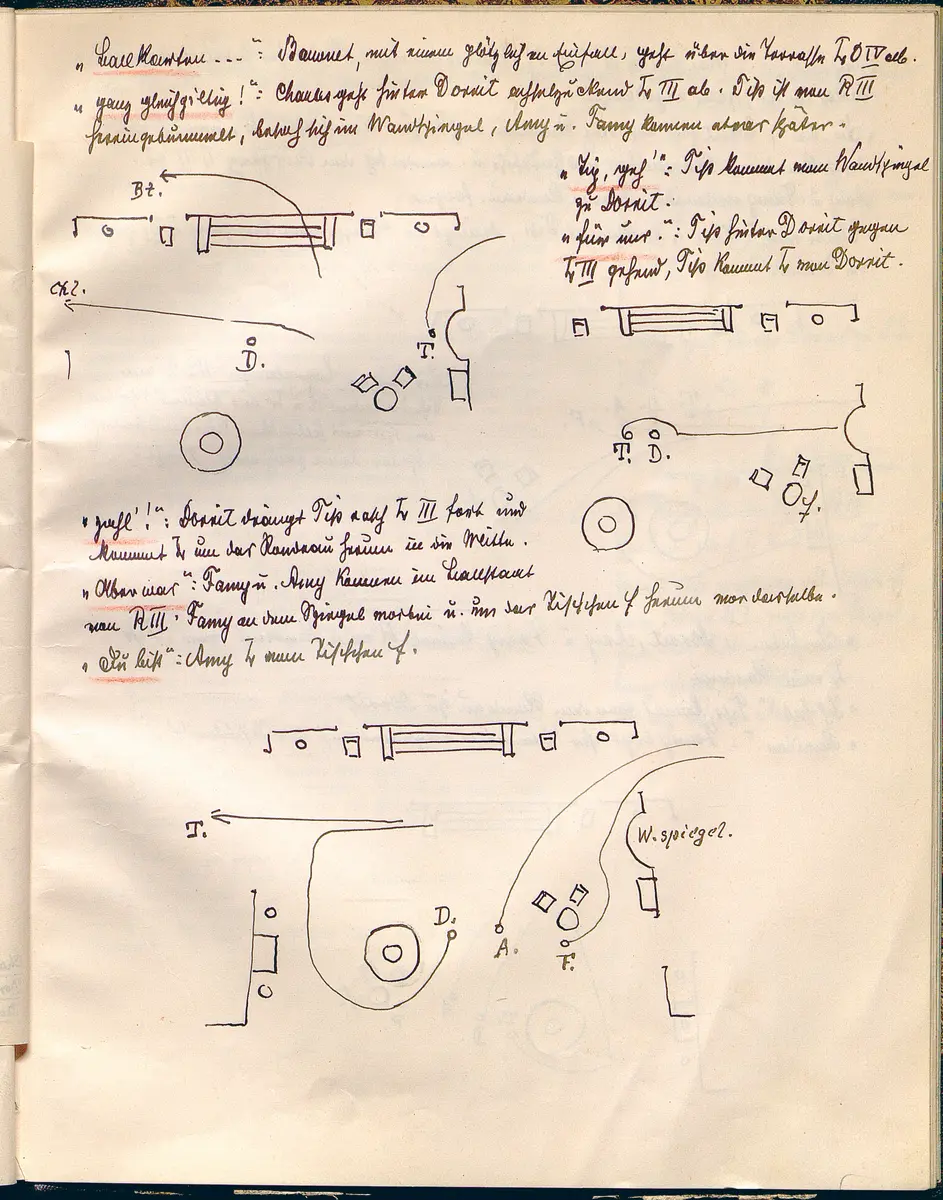 „ Ballkarten ... “: Baumet, mit einem plötzlichen Einfall, geht über die Terrasse L O IV ab.
„ ganz gleichgiltig ! “: Charles geht hinter Dorrit achselzuckend L III ab. Tip ist von R III
hereingebummelt, besah sich im Wandspiegel, Amy u. Fanny kommen etwas später.
„ Tip, geh' “: Tip kommt vom Wandspiegel
zu Dorrit.
„ für uns. “: Tip hinter Dorrit gegen
L III gehend, Tip kommt L von Dorrit.
Bt.
Chl.
D.
T.
T. D.
f.
„ ! “: Dorrit drängt Tip rasch L III fort und
kommt L um das Rondeau herum in die Mitte.
„ Aber was “: Fanny u. Amy kommen im Ballstaat
von R III. Fanny an dem Spiegel vorbei u. um das Tischchen f herum vor dasselbe.
„ Du bist “: Amy L vom Tischchen f.
T.
W. spiegel.
D.
A.
F.